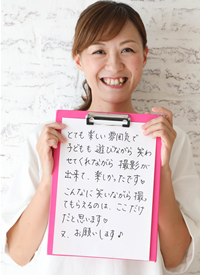 とても楽しい雰囲気で
子どもも遊びながら笑わ
せてくれながら撮影が
出来て、楽しかったです♡
こんなに笑いながら撮っ
てもらえるのは、ここだけ
だと思います♡
又、お願いします♪